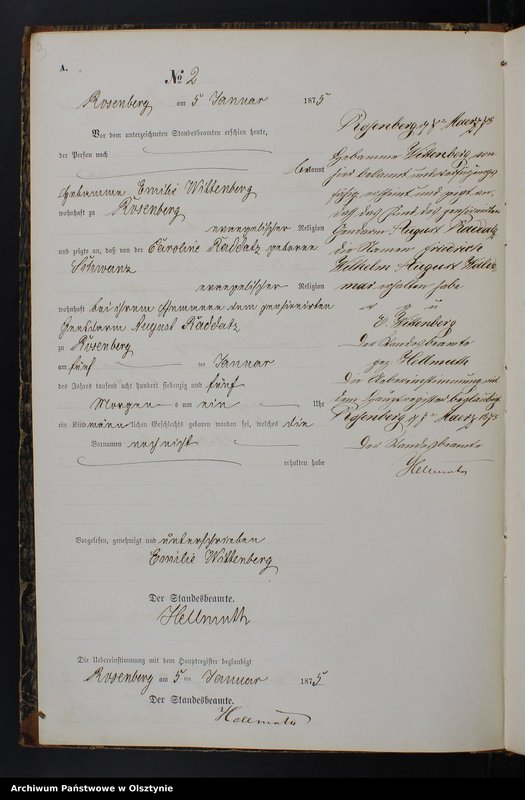 A.
No 2
Rosenberg am 5 Januar 1875
Vor dem unterzeichneten Standesbeamten erschien heute,
der Person nach
bekannt
Hebamme Emilie Wittenberg
wohnhaft zu Rosenberg
evangelischer Religion
und zeigte an, daß von der Caroline Raddatz geborene
Schwanz
evangelischer Religion
wohnhaft bei ihrem Ehemanne dem pensionirten
Gensdarm August Raddatz
zu Rosenberg
am fünf ten Januar
des Jahres tausend acht hundert siebenzig und fünf
Morgens um ein Uhr
ein Kind männlichen Geschlechts geboren worden sei, welches die
Vornamen noch nicht
erhalten habe
Vorgelesen, genehmigt und unterschrieben
Emilie Wittenberg
Der Standesbeamte.
Hellmuth
Die Uebereinstimmung mit dem Hauptregister beglaubigt
Rosenberg am 5 ten Januar 1875
Der Standesbeamte.
Hellmuth
Rosenberg, März 75
Hebamme Wittenberg, von
hier bekannt und verfügungs
fähig, erscheint und zeigt an,
daß das Kind des pensionirten
Gendarm August Raddatz
die Namen Friedrich
Wilhelm August Waldemar
erhalten habe
v g u
E. Wittenberg
Der Standesbeamte
gez Hellmuth
Die Uebereinstimmung mit
dem Hauptregister beglaubigt
Rosenberg März 1875
Der Standesbeamte
Hellmuth
Archiwum Państwowe w Olsztynie